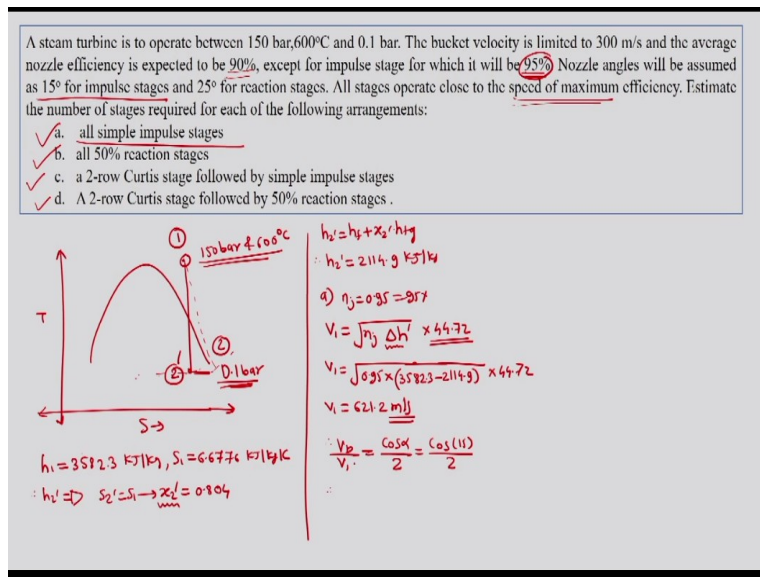 A steam turbine is to operate between 150 bar,600°C and 0.1 bar. The bucket velocity is limited to 300 m/s and the average
nozzle efficiency is expected to be 90%, except for impulse stage for which it will be 95%. Nozzle angles will be assumed
as 15° for impulse stages and 25° for reaction stages. All stages operate close to the speed of maximum efficiency. Estimate
the number of stages required for each of the following arrangements:
a. all simple impulse stages
b. all 50% reaction stages
c. a 2-row Curtis stage followed by simple impulse stages
d. A 2-row Curtis stage followed by 50% reaction stages .
①
150bar & 600°C
T
②
②'
0.1bar
S→
h₁=3582.3 KJ/Kg, S₁=6.6776 KJ/kgK
∴ h₂' ⇒ S₂'=S₁→ x₂'=0.804
h₂'=hf+x₂'hfg
∴ h₂'=2114.9 KJ/kg
a) ηj=0.95=95%
V₁=√ηj Δh' ×44.72
V₁=√0.95×(3582.3-2114.9) ×44.72
V₁=621.2 m/s
∴ Vb/V₁ = Cosα/2 = Cos(15)/2
∴